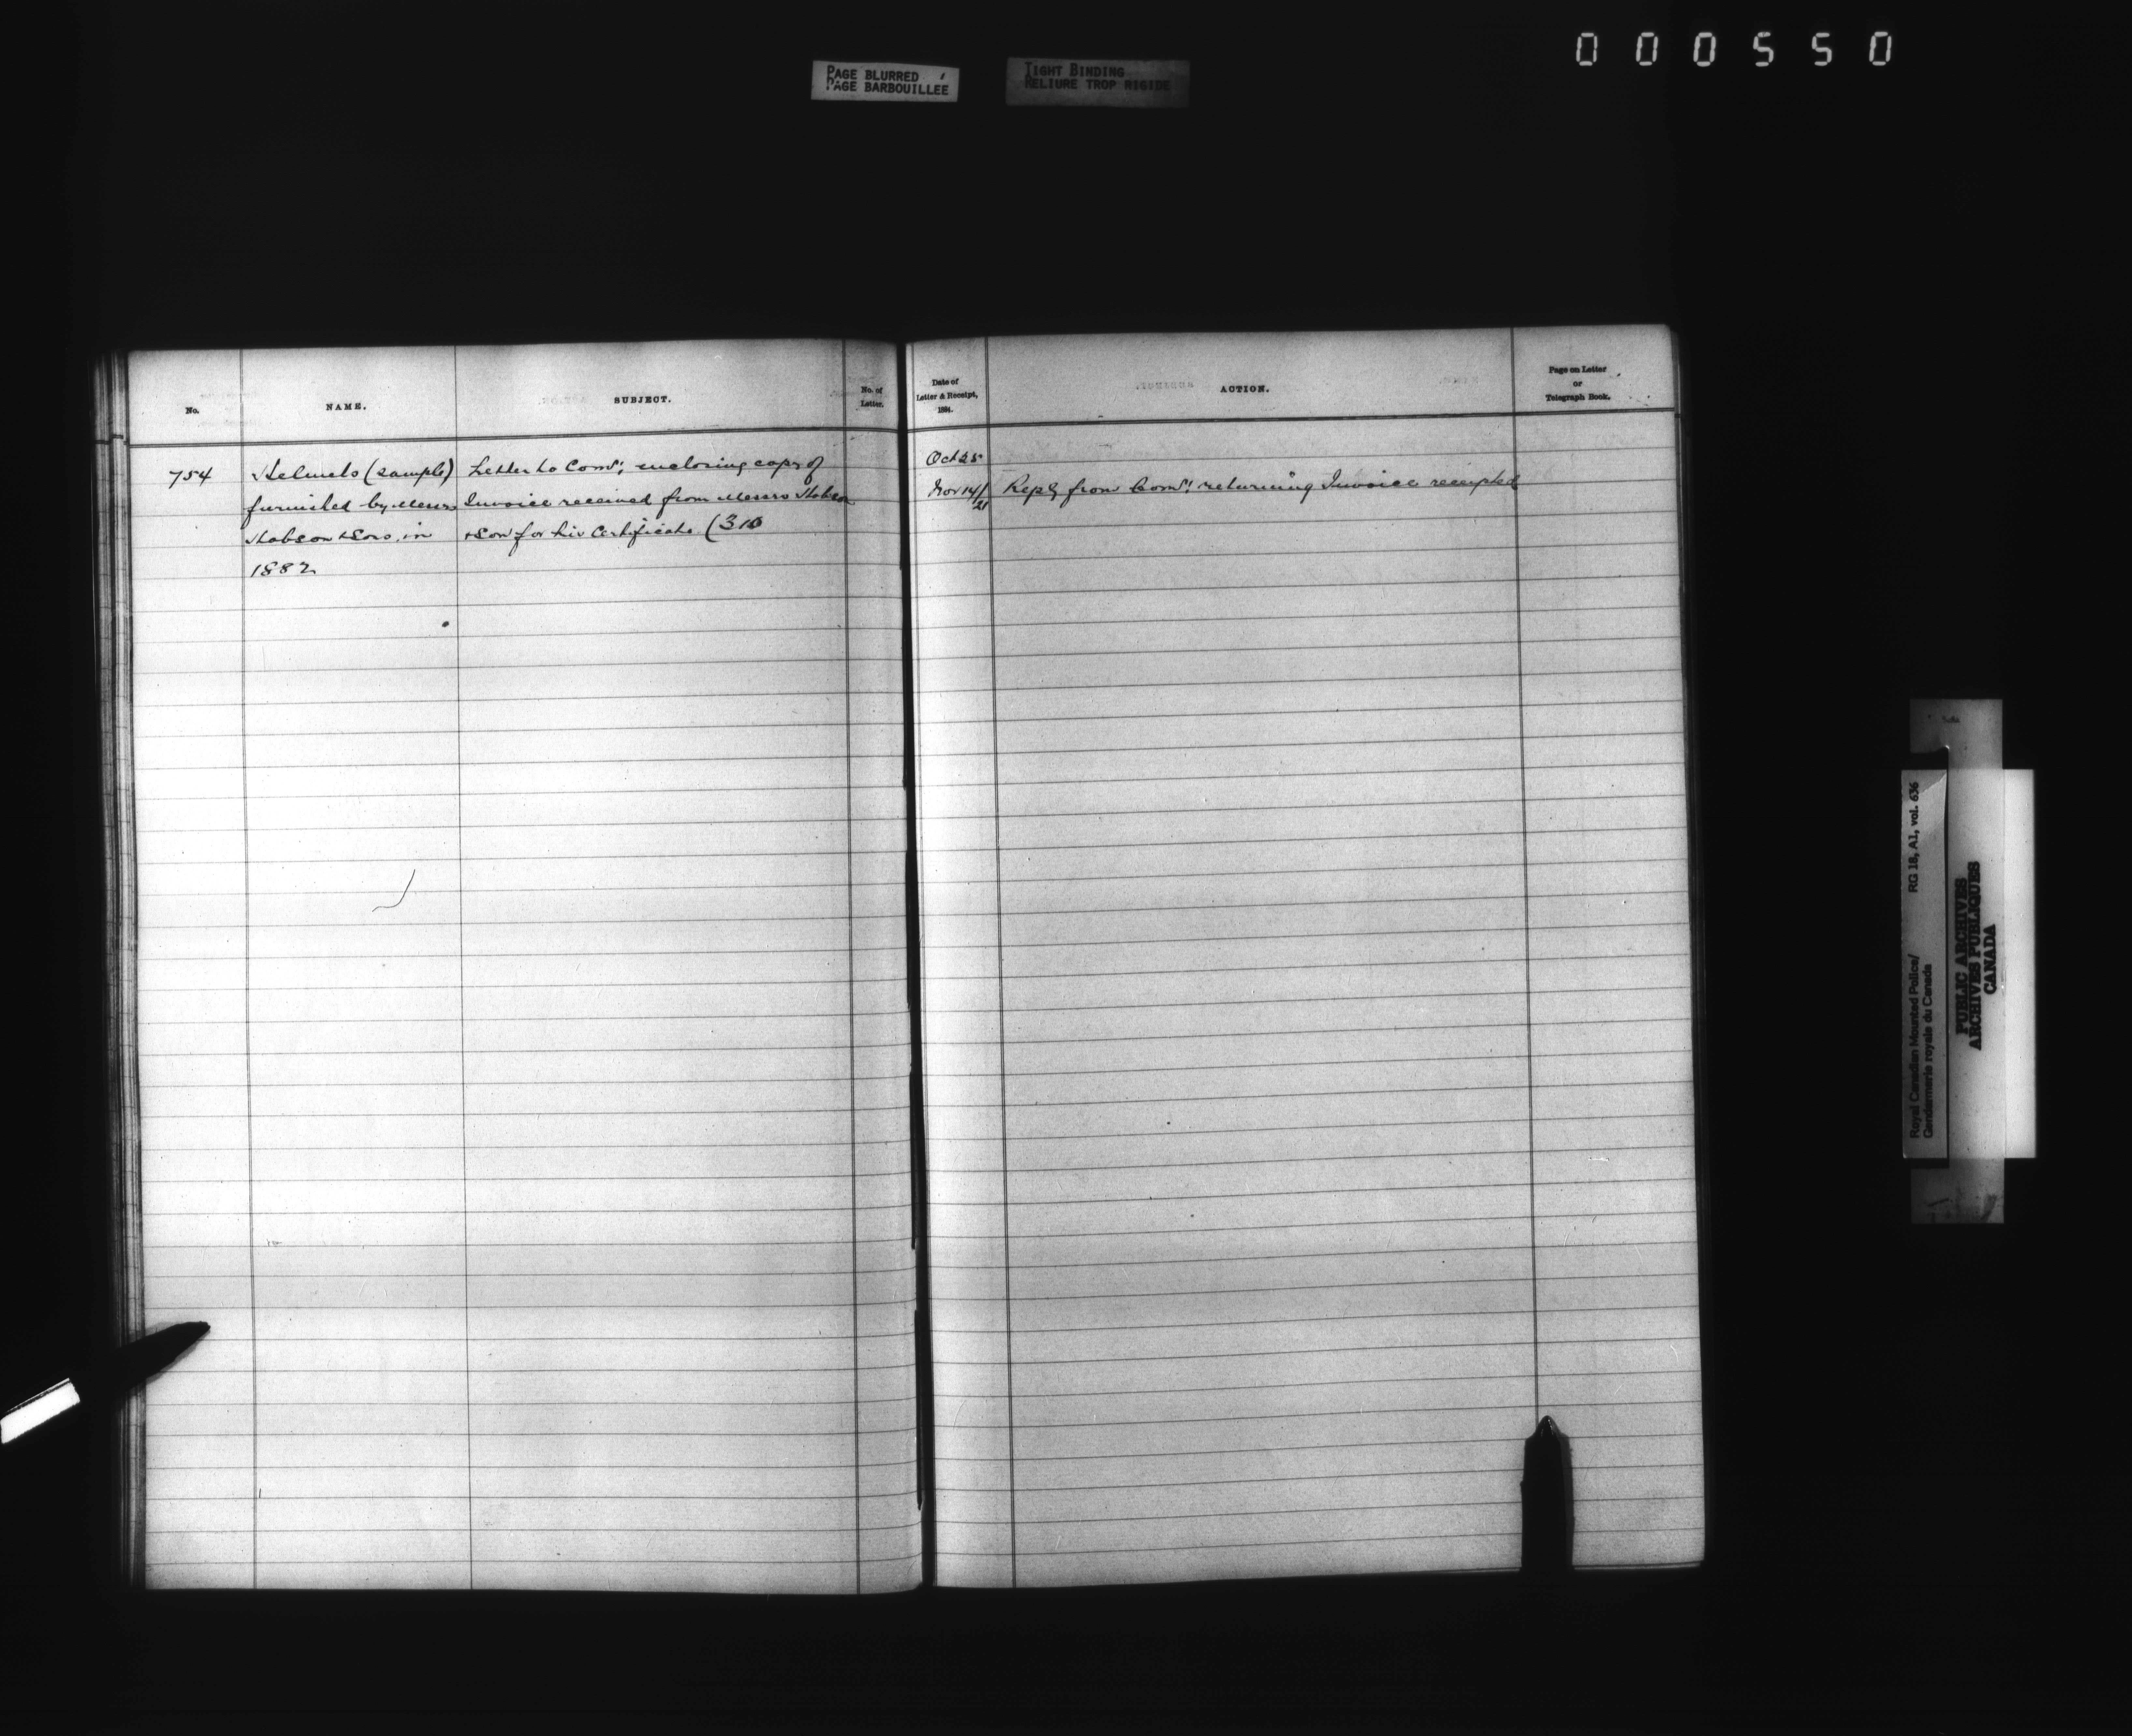 000550
PAGE BLURRED
PAGE BARBOUILLEE
TIGHT BINDING
RELIURE TROP RIGIDE
No.
NAME.
SUBJECT.
No. of
Letter.
754
Helmets (sample)
furnished by Messrs
Hobson & Sons, in
1882
Letter to Comr: enclosing copy of
Invoice received from Messrs Hobson
& Son for his Certificate (310
Date of
Letter & Receipt,
1884.
ACTION.
Page on Letter
or
Telegraph Book.
Oct 25
Nov 14/21
Reply from Comr: returning Invoice receipted
Royal Canadian Mounted Police/
Gendarmerie royale du Canada
RG 18, A1, vol. 636
PUBLIC ARCHIVES
ARCHIVES PUBLIQUES
CANADA